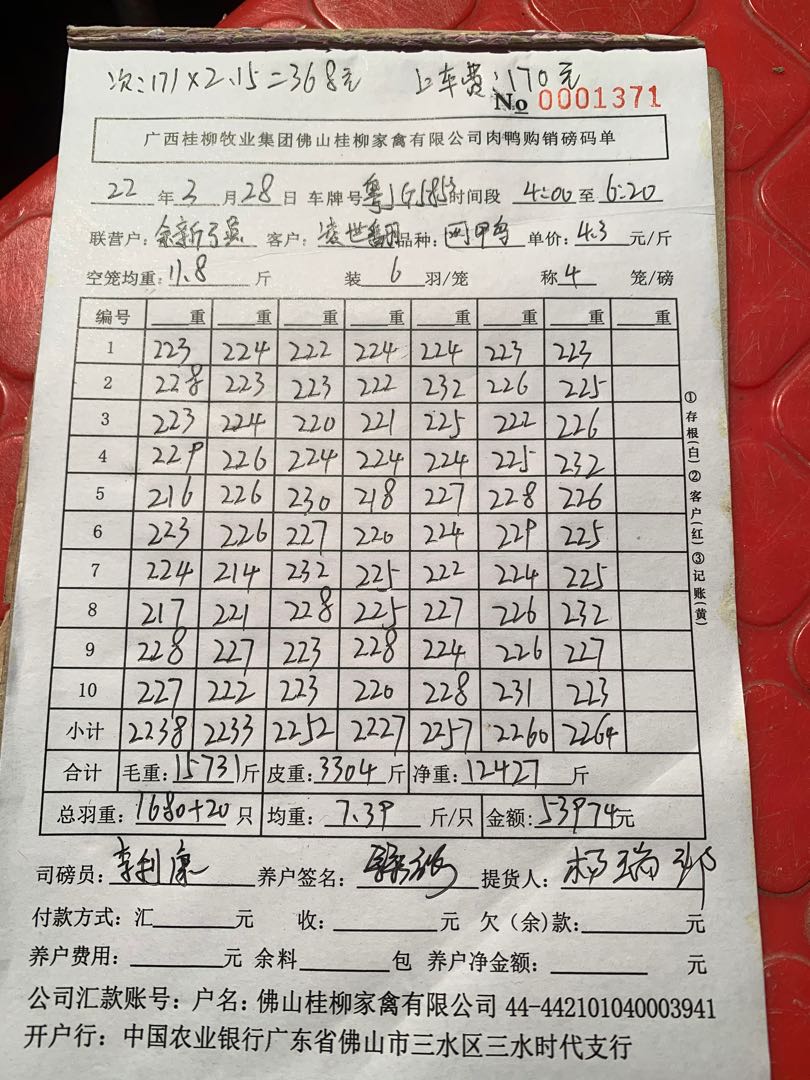 次:171×2.15=368元 上车费:170元
No 0001371
广西桂柳牧业集团佛山桂柳家禽有限公司肉鸭购销磅码单
22年3月28日 车牌号 时间段 4:00至6:20
联营户: 客户: 品种: 单价:4.3元/斤
空笼均重:11.8斤 装6羽/笼 称4笼/磅
编号 重 重 重 重 重 重 重 重
1 223 224 222 224 224 223 223
2 228 223 223 222 232 226 225
3 223 224 220 221 225 222 226
4 229 226 224 224 224 225 232
5 216 226 230 218 227 228 226
6 223 226 227 220 224 229 225
7 224 214 232 225 222 224 225
8 217 221 228 225 227 226 232
9 228 227 223 228 224 226 227
10 227 222 223 220 228 231 223
小计 2238 2233 2252 2227 2257 2260 2264
合计 毛重:15731斤 皮重:3304斤 净重:12427斤
总羽重:1680+20只 均重:7.39斤/只 金额:53974元
司磅员:李利康 养户签名: 提货人:
付款方式:汇 元 收: 元 欠(余)款: 元
养户费用: 元 余料 包 养户净金额: 元
公司汇款账号:户名:佛山桂柳家禽有限公司 44-442101040003941
开户行:中国农业银行广东省佛山市三水区三水时代支行
①存根(白)②客户(红)③记账(黄)